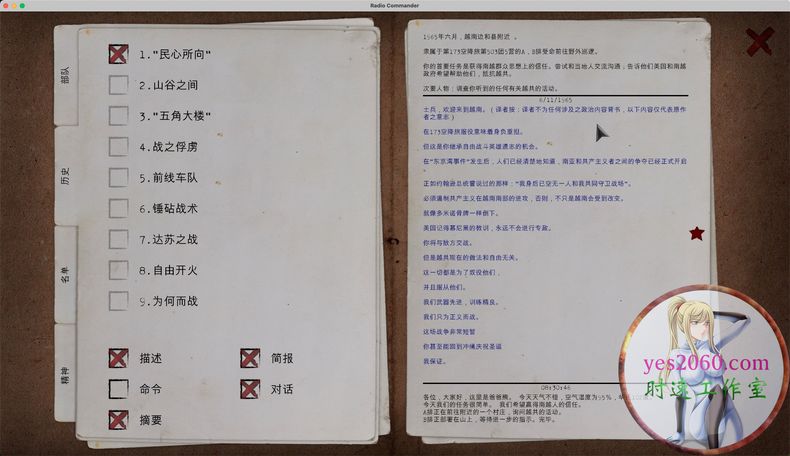 Radio Commander
部队
历史
名单
精神
1."民心所向"
2.山谷之间
3."五角大楼"
4.战之俘虏
5.前线车队
6.锤砧战术
7.达苏之战
8.自由开火
9.为何而战
描述
简报
命令
对话
摘要
1965年六月，越南边和县附近 。
隶属于第173空降旅第503团5营的A，B排受命前往野外巡逻。
你的首要任务是获得南越群众思想上的信任。尝试和当地人交流沟通，告诉他们美国和南越
政府希望帮助他们，抵抗越共。
次要人物：调查你听到的任何有关越共的活动。
6/11/1965
士兵，欢迎来到越南。（译者按：译者不为任何涉及之政治内容背书，以下内容仅代表原作
者之意志）
在173空降旅服役意味着身负重担。
但这是你继承自由战斗英雄遗志的机会。
在"东京湾事件"发生后，人们已经清楚地知道，南亚和共产主义者之间的争夺已经正式开启
。
正如约翰逊总统曾说过的那样："我身后已空无一人和我共同守卫战场"。
必须遏制共产主义在越南南部的进攻，否则，不只是越南会受到改变。
就像多米诺骨牌一样倒下。
美国记得慕尼黑的教训，永远不会进行专政。
你将与敌方交战。
但是越共现在的做法和自由无关。
这一切都是为了奴役他们，
并且服从他们。
我们武器先进，训练精良。
我们只为正义而战。
这场战争非常短暂
你甚至能回到冲绳庆祝圣诞
我保证。
08:30:46
各位，大家好，这里是爸爸熊。 今天天气不错，空气湿度为95%，
今天我们的任务很简单。 我们希望赢得南越人的信任。
A排正在前往附近的一个村庄，询问越共的活动。
B排正部署在山上，等待进一步的指示。完毕。
yes2060.com
时速工作室